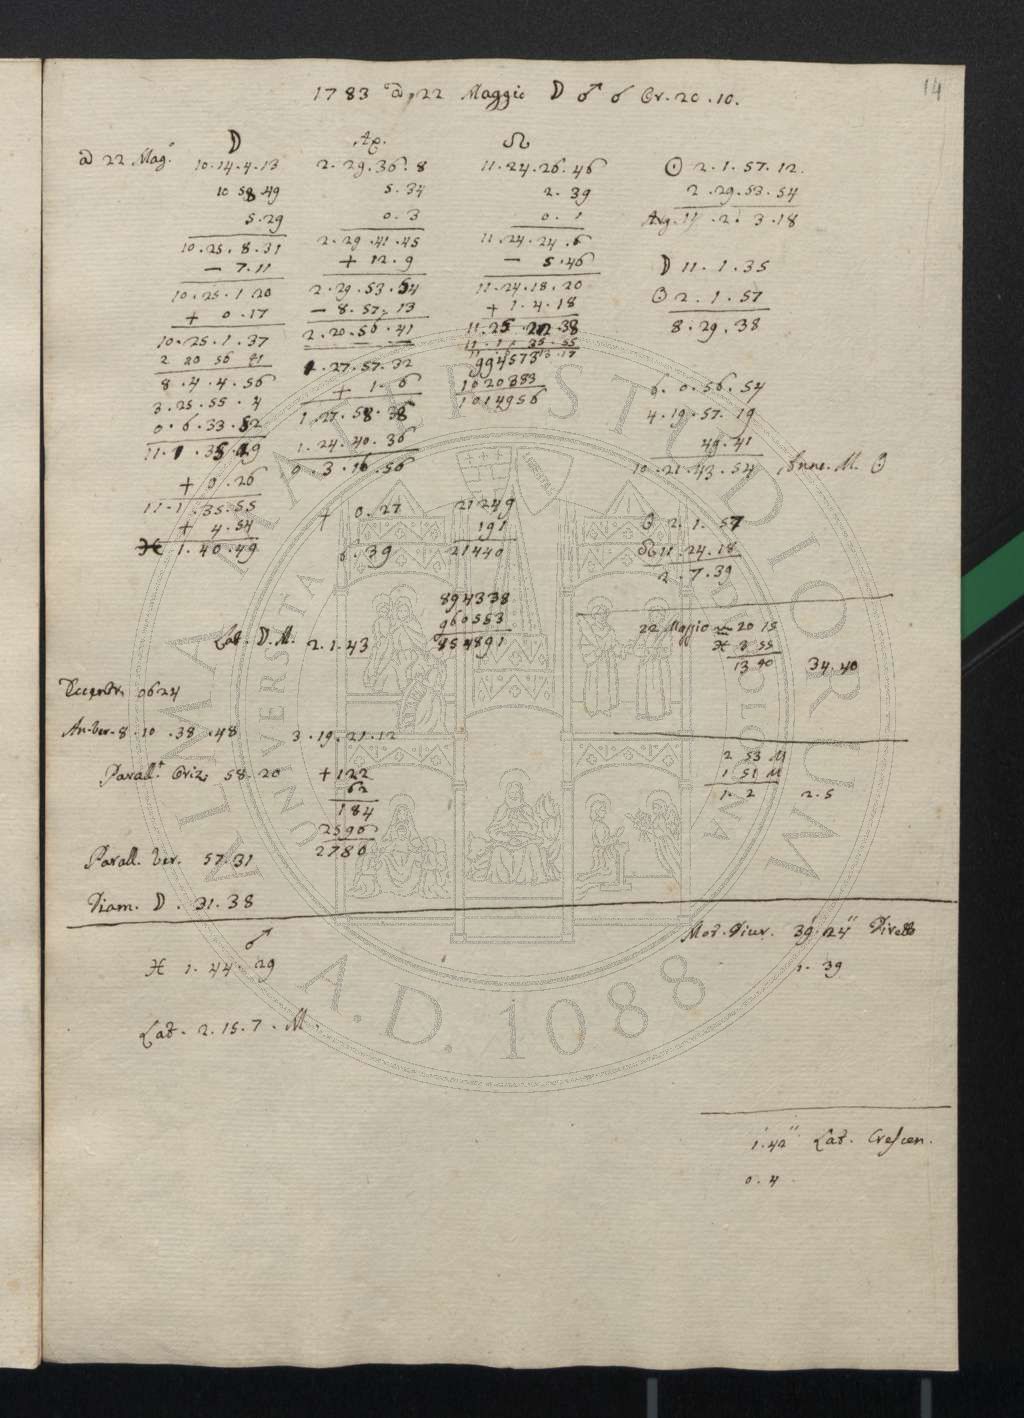 14
1783 a 22 Maggio ☽ ♂ ☌ Or. 20. 10.
☽
a 22 Mag.° 10. 14. 4. 13
10 58 49
5. 29
10. 25. 8. 31
− 7. 11
10. 25. 1 20
+ 0. 17
10. 25. 1. 37
2 20 56 41
8. 4. 4. 56
3. 25. 55. 4
0. 6. 33. 52
11. 1. 35. 29
+ 0. 26
11. 1. 35. 55
+ 4. 54
♓ 1. 40. 49
Ap.
2. 29. 36. 8
5. 34
0. 3
2. 29. 41. 45
+ 12. 9
2. 29. 53. 54
− 8. 57. 13
2. 20. 56. 41
1. 27. 57. 32
+ 1. 6
1. 27. 58. 38
1. 24. 40. 36
0. 3. 16. 56
+ 0. 27
6. 39
☊
11. 24. 26. 46
2. 39
0. 1
11. 24. 24. 6
− 5. 46
11. 24. 18. 20
+ 1. 4. 18
11. 25. 22. 38
11. 1. 35. 55
9945731
1020383
1014956
21249
191
21440
894338
960553
854891
☉ 2. 1. 57. 12.
2. 29. 53. 54
Arg. 11. 2. 3. 18
☽ 11. 1. 35
☉ 2. 1. 57
8. 29. 38
6. 0. 56. 54
4. 19. 57. 19
49. 41
10. 21. 43. 54 Anno. M. ☉
☉ 2. 1. 57
☊ 11. 24. 18
2. 7. 39
Lat. ☽. M. 2. 1. 43
22 Maggio 20 15
♓ 3 55
13 40 34. 40
0624
An. ver. 8. 10. 38. 48 3. 19. 21. 12
Parall.t Oriz. 58. 20
+ 122
62
184
2596
2780
2 53 M
1 51 M
1. 2 2. 5
Parall. ver. 57. 31
Diam. ☽. 31. 38
♂
♓ 1. 44. 29
Mot. Diur. 39′. 24″ Diretto
1. 39
Lat. 2. 15. 7. M.
1′. 42″ Lat. Crescen.
0. 4
ALMA MATER STUDIORUM
A.D. 1088